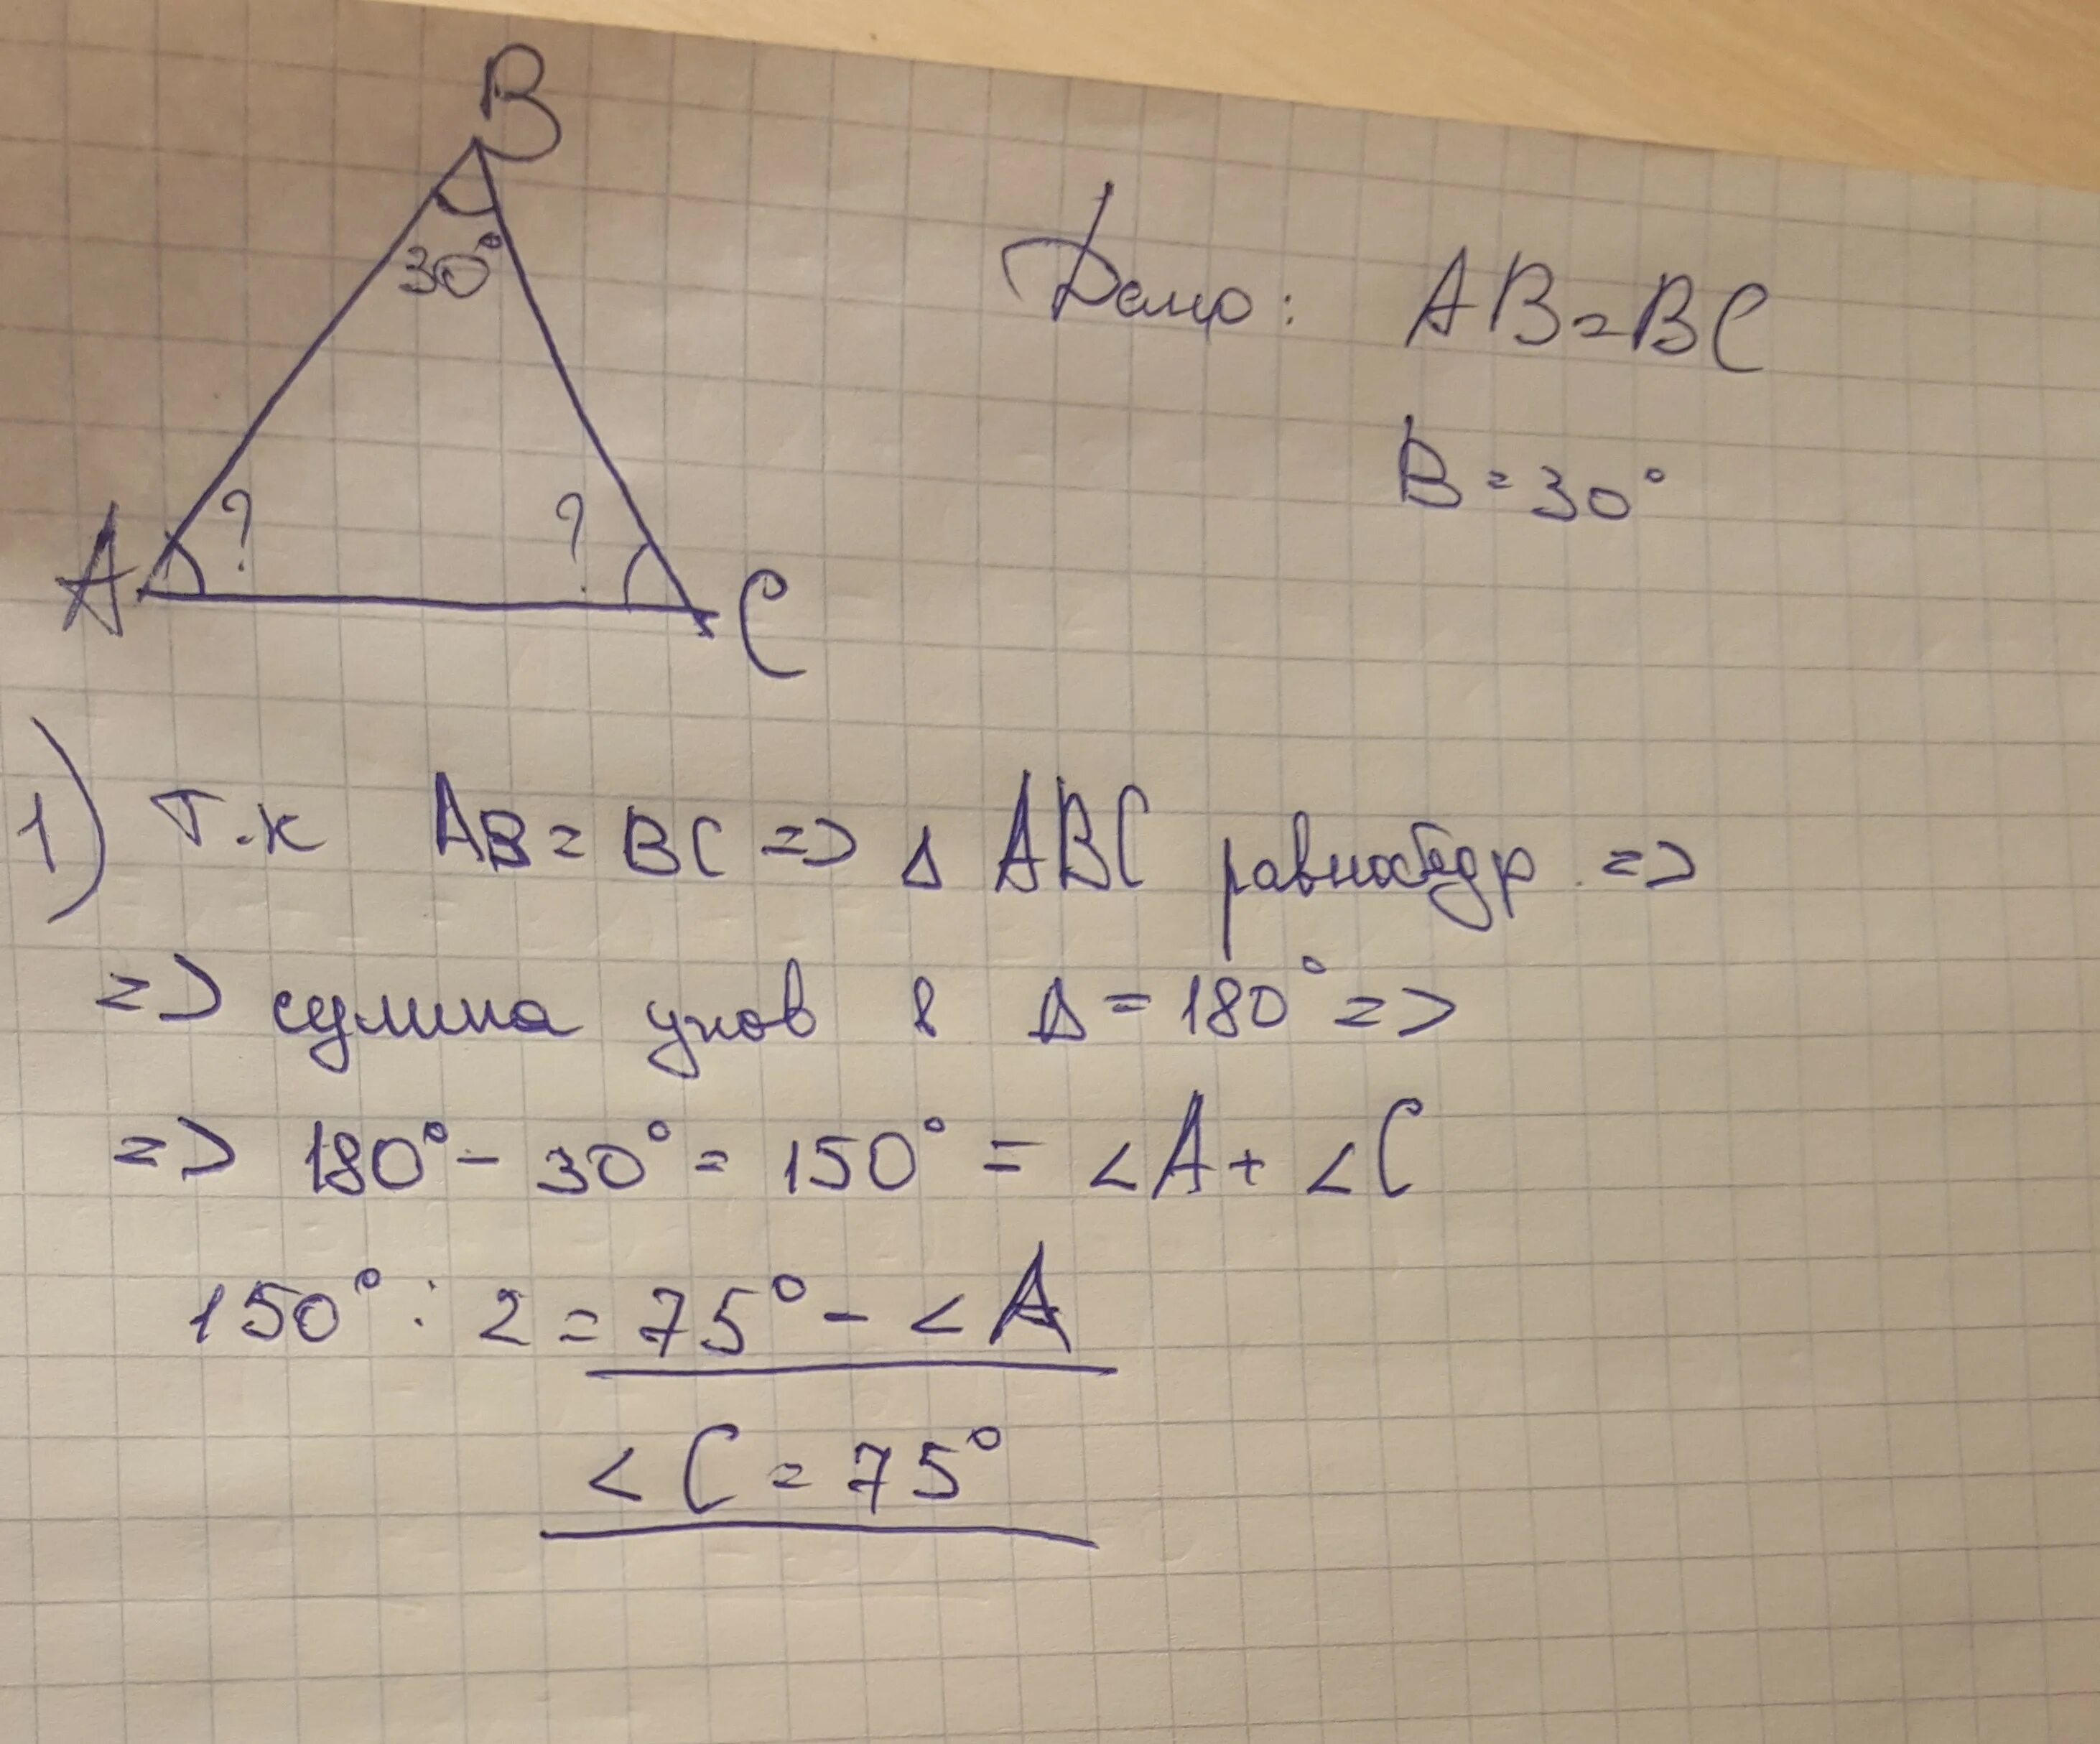 B
30°
Дано: AB=BC
B=30°
A ? ? C
1) Т.к AB=BC => Δ ABC равнобедр =>
=> сумма углов в Δ = 180° =>
=> 180° - 30° = 150° = ∠A + ∠C
150° : 2 = 75° - ∠A
∠C = 75°